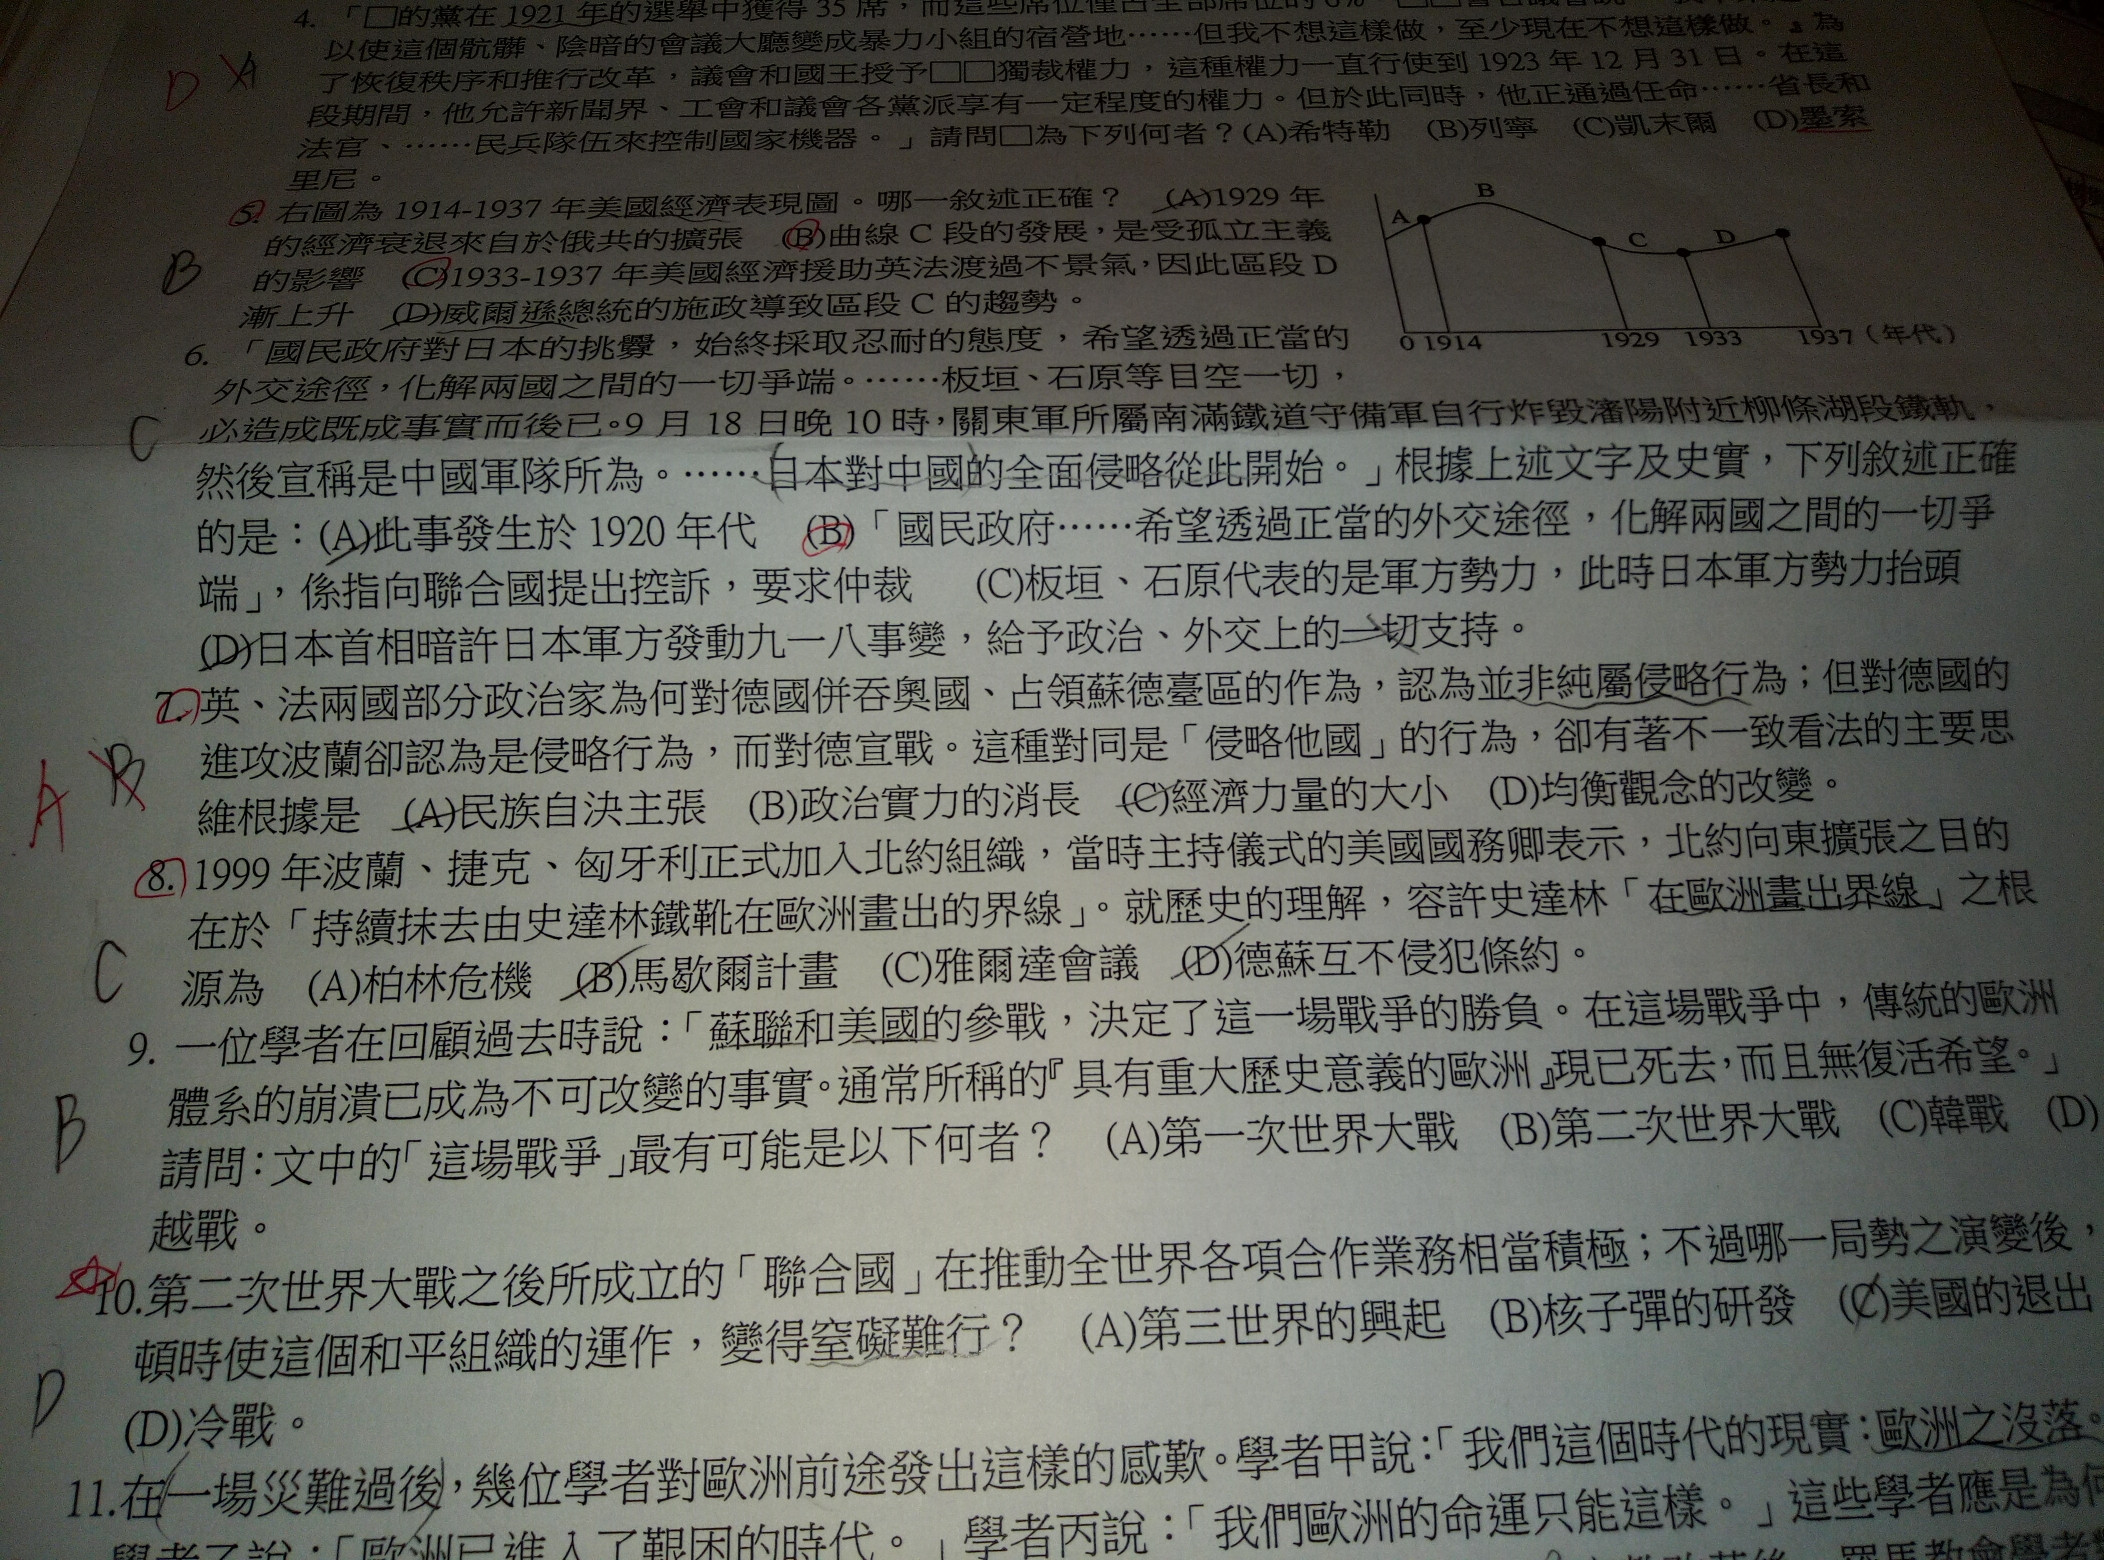 4. 「□的黨在 1921 年的選舉中獲得 35 席，而這些席位僅占全部席位的 6%
以使這個骯髒、陰暗的會議大廳變成暴力小組的宿營地……但我不想這樣做，至少現在不想這樣做。』為
D A 了恢復秩序和推行改革，議會和國王授予□□獨裁權力，這種權力一直行使到 1923 年 12 月 31 日。在這
段期間，他允許新聞界、工會和議會各黨派享有一定程度的權力。但於此同時，他正通過任命……省長和
法官、……民兵隊伍來控制國家機器。」請問□為下列何者？(A)希特勒 (B)列寧 (C)凱末爾 (D)墨索
里尼。
5. 右圖為 1914-1937 年美國經濟表現圖。哪一敘述正確？ (A)1929 年
的經濟衰退來自於俄共的擴張 (B)曲線 C 段的發展，是受孤立主義
B 的影響 (C)1933-1937 年美國經濟援助英法渡過不景氣，因此區段 D
漸上升 (D)威爾遜總統的施政導致區段 C 的趨勢。
A B C D
0 1914 1929 1933 1937（年代）
6. 「國民政府對日本的挑釁，始終採取忍耐的態度，希望透過正當的
外交途徑，化解兩國之間的一切爭端。……板垣、石原等目空一切，
C 必造成既成事實而後已。9 月 18 日晚 10 時，關東軍所屬南滿鐵道守備軍自行炸毀瀋陽附近柳條湖段鐵軌，
然後宣稱是中國軍隊所為。……日本對中國的全面侵略從此開始。」根據上述文字及史實，下列敘述正確
的是：(A)此事發生於 1920 年代 (B)「國民政府……希望透過正當的外交途徑，化解兩國之間的一切爭
端」，係指向聯合國提出控訴，要求仲裁 (C)板垣、石原代表的是軍方勢力，此時日本軍方勢力抬頭
(D)日本首相暗許日本軍方發動九一八事變，給予政治、外交上的一切支持。
7. 英、法兩國部分政治家為何對德國併吞奧國、占領蘇德臺區的作為，認為並非純屬侵略行為；但對德國的
A B 進攻波蘭卻認為是侵略行為，而對德宣戰。這種對同是「侵略他國」的行為，卻有著不一致看法的主要思
維根據是 (A)民族自決主張 (B)政治實力的消長 (C)經濟力量的大小 (D)均衡觀念的改變。
8. 1999 年波蘭、捷克、匈牙利正式加入北約組織，當時主持儀式的美國國務卿表示，北約向東擴張之目的
在於「持續抹去由史達林鐵靴在歐洲畫出的界線」。就歷史的理解，容許史達林「在歐洲畫出界線」之根
C 源為 (A)柏林危機 (B)馬歇爾計畫 (C)雅爾達會議 (D)德蘇互不侵犯條約。
9. 一位學者在回顧過去時說：「蘇聯和美國的參戰，決定了這一場戰爭的勝負。在這場戰爭中，傳統的歐洲
體系的崩潰已成為不可改變的事實。通常所稱的『具有重大歷史意義的歐洲』現已死去，而且無復活希望。」
B 請問：文中的「這場戰爭」最有可能是以下何者？ (A)第一次世界大戰 (B)第二次世界大戰 (C)韓戰 (D)
越戰。
10.第二次世界大戰之後所成立的「聯合國」在推動全世界各項合作業務相當積極；不過哪一局勢之演變後，
頓時使這個和平組織的運作，變得窒礙難行？ (A)第三世界的興起 (B)核子彈的研發 (C)美國的退出
D (D)冷戰。
11.在一場災難過後，幾位學者對歐洲前途發出這樣的感歎。學者甲說：「我們這個時代的現實：歐洲之沒落。
學者乙說：「歐洲已進入了艱困的時代。」學者丙說：「我們歐洲的命運只能這樣。」這些學者應是為何